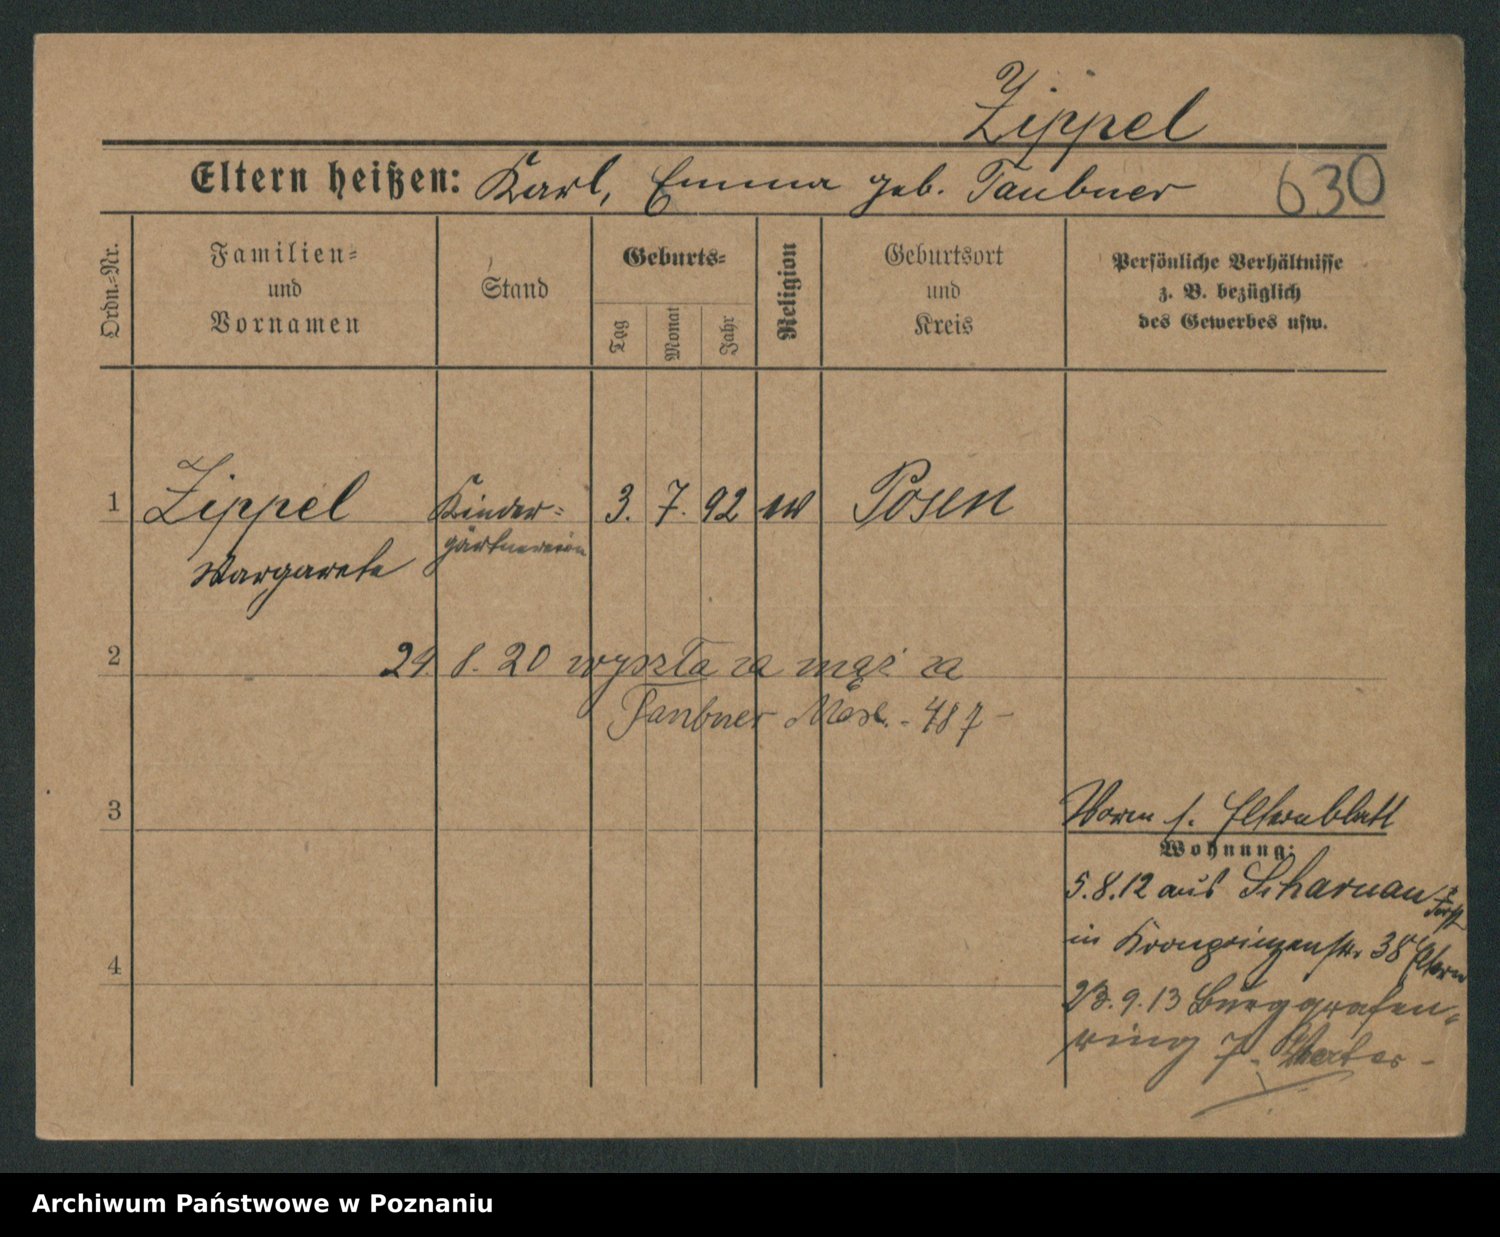 Zippel
Eltern heißen: Karl, Emma geb. Taubner
630
Ordn.-Nr.
Familien-
und
Vornamen
Stand
Geburts-
Tag
Monat
Jahr
Religion
Geburtsort
und
Kreis
Persönliche Verhältnisse
z. B. bezüglich
des Gewerbes usw.
1 Zippel Kinder- 3. 7. 92 ev Posen
gärtnerin
Margarete
2 24. 8. 20 wyszła za mąż za
Taubner 487
3
Vorm s. Elternblatt
Wohnung:
5.8.12 aus Scharnau
in Kronprinzenstr. 38 Eltern
4
23.9.13 Burggrafen-
ring 7. Vater
Archiwum Państwowe w Poznaniu